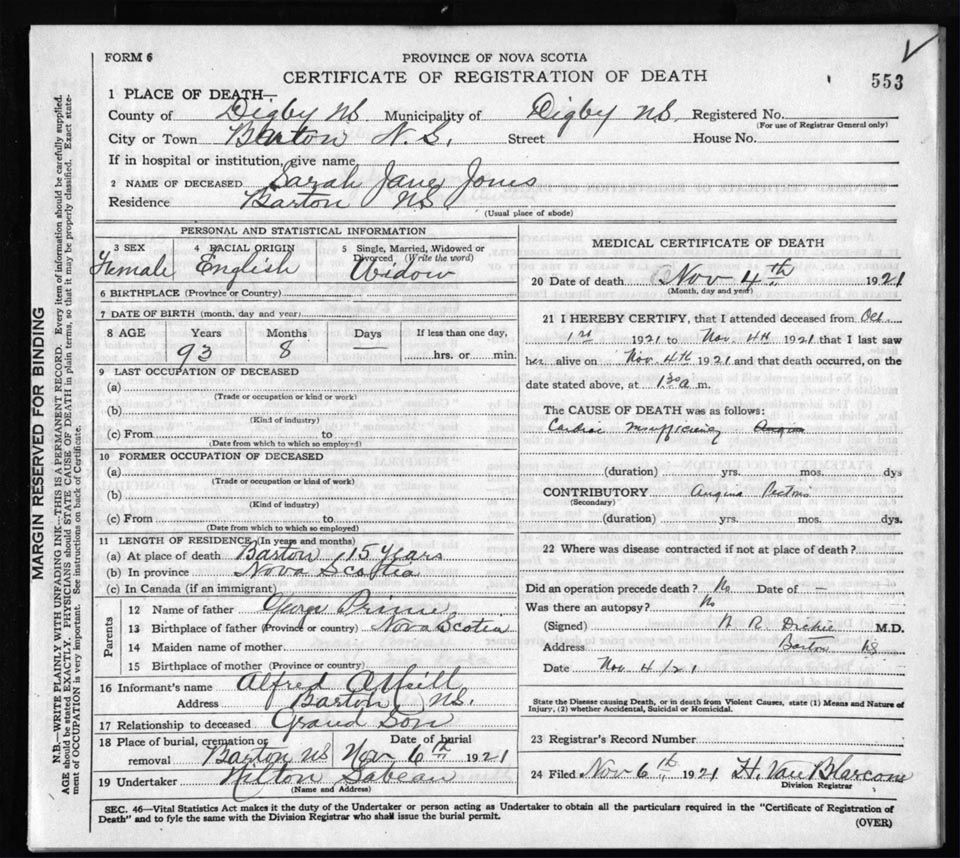 FORM 6
PROVINCE OF NOVA SCOTIA
CERTIFICATE OF REGISTRATION OF DEATH
553
1 PLACE OF DEATH—
County of Digby N.S. Municipality of Digby N.S. Registered No.
(For use of Registrar General only)
City or Town Barton N.S. Street House No.
If in hospital or institution, give name
2 NAME OF DECEASED Sarah Jane Jones
Residence Barton N.S.
(Usual place of abode)
PERSONAL AND STATISTICAL INFORMATION
3 SEX 4 RACIAL ORIGIN 5 Single, Married, Widowed or Divorced (Write the word)
Female English Widow
6 BIRTHPLACE (Province or Country)
7 DATE OF BIRTH (month, day and year)
8 AGE Years Months Days If less than one day,
93 8 — hrs. or min.
9 LAST OCCUPATION OF DECEASED
(a)
(Trade or occupation or kind or work)
(b)
(Kind of industry)
(c) From to
(Date from which to which so employed)
10 FORMER OCCUPATION OF DECEASED
(a)
(Trade or occupation or kind of work)
(b)
(Kind of industry)
(c) From to
(Date from which to which so employed)
11 LENGTH OF RESIDENCE (In years and months)
(a) At place of death Barton 15 Years
(b) In province Nova Scotia
(c) In Canada (if an immigrant)
Parents
12 Name of father George Prime
13 Birthplace of father (Province or country) Nova Scotia
14 Maiden name of mother
15 Birthplace of mother (Province or country)
16 Informant's name Alfred
Address Barton N.S.
17 Relationship to deceased Grand Son
18 Place of burial, cremation or removal Barton NS Date of burial Nov 6th 1921
19 Undertaker Hilton Sabean
(Name and Address)
MEDICAL CERTIFICATE OF DEATH
20 Date of death Nov 4th 1921
(Month, day and year)
21 I HEREBY CERTIFY, that I attended deceased from Oct
1st 1921 to Nov. 4th 1921 that I last saw
her alive on Nov. 4th 1921 and that death occurred, on the
date stated above, at 1 30 a m.
The CAUSE OF DEATH was as follows:
Cardiac Insufficiency Angina
(duration) yrs. mos. dys
CONTRIBUTORY Angina Pectoris
(Secondary)
(duration) yrs. mos. dys.
22 Where was disease contracted if not at place of death?
Did an operation precede death? No Date of —
Was there an autopsy? No
(Signed) Dickie M.D.
Address Barton NS
Date Nov 4/21
State the Disease causing Death, or in death from Violent Causes, state (1) Means and Nature of
Injury, (2) whether Accidental, Suicidal or Homicidal.
23 Registrar's Record Number
24 Filed Nov 6th 1921 H. Van Blarcom
Division Registrar
SEC. 46—Vital Statistics Act makes it the duty of the Undertaker or person acting as Undertaker to obtain all the particulars required in the "Certificate of Registration of
Death" and to fyle the same with the Division Registrar who shall issue the burial permit.
(OVER)
MARGIN RESERVED FOR BINDING
N.B.—WRITE PLAINLY WITH UNFADING INK—THIS IS A PERMANENT RECORD. Every item of information should be carefully supplied.
AGE should be stated EXACTLY. PHYSICIANS should STATE CAUSE OF DEATH in plain terms, so that it may be properly classified. Exact state-
ment of OCCUPATION is very important. See instructions on back of Certificate.